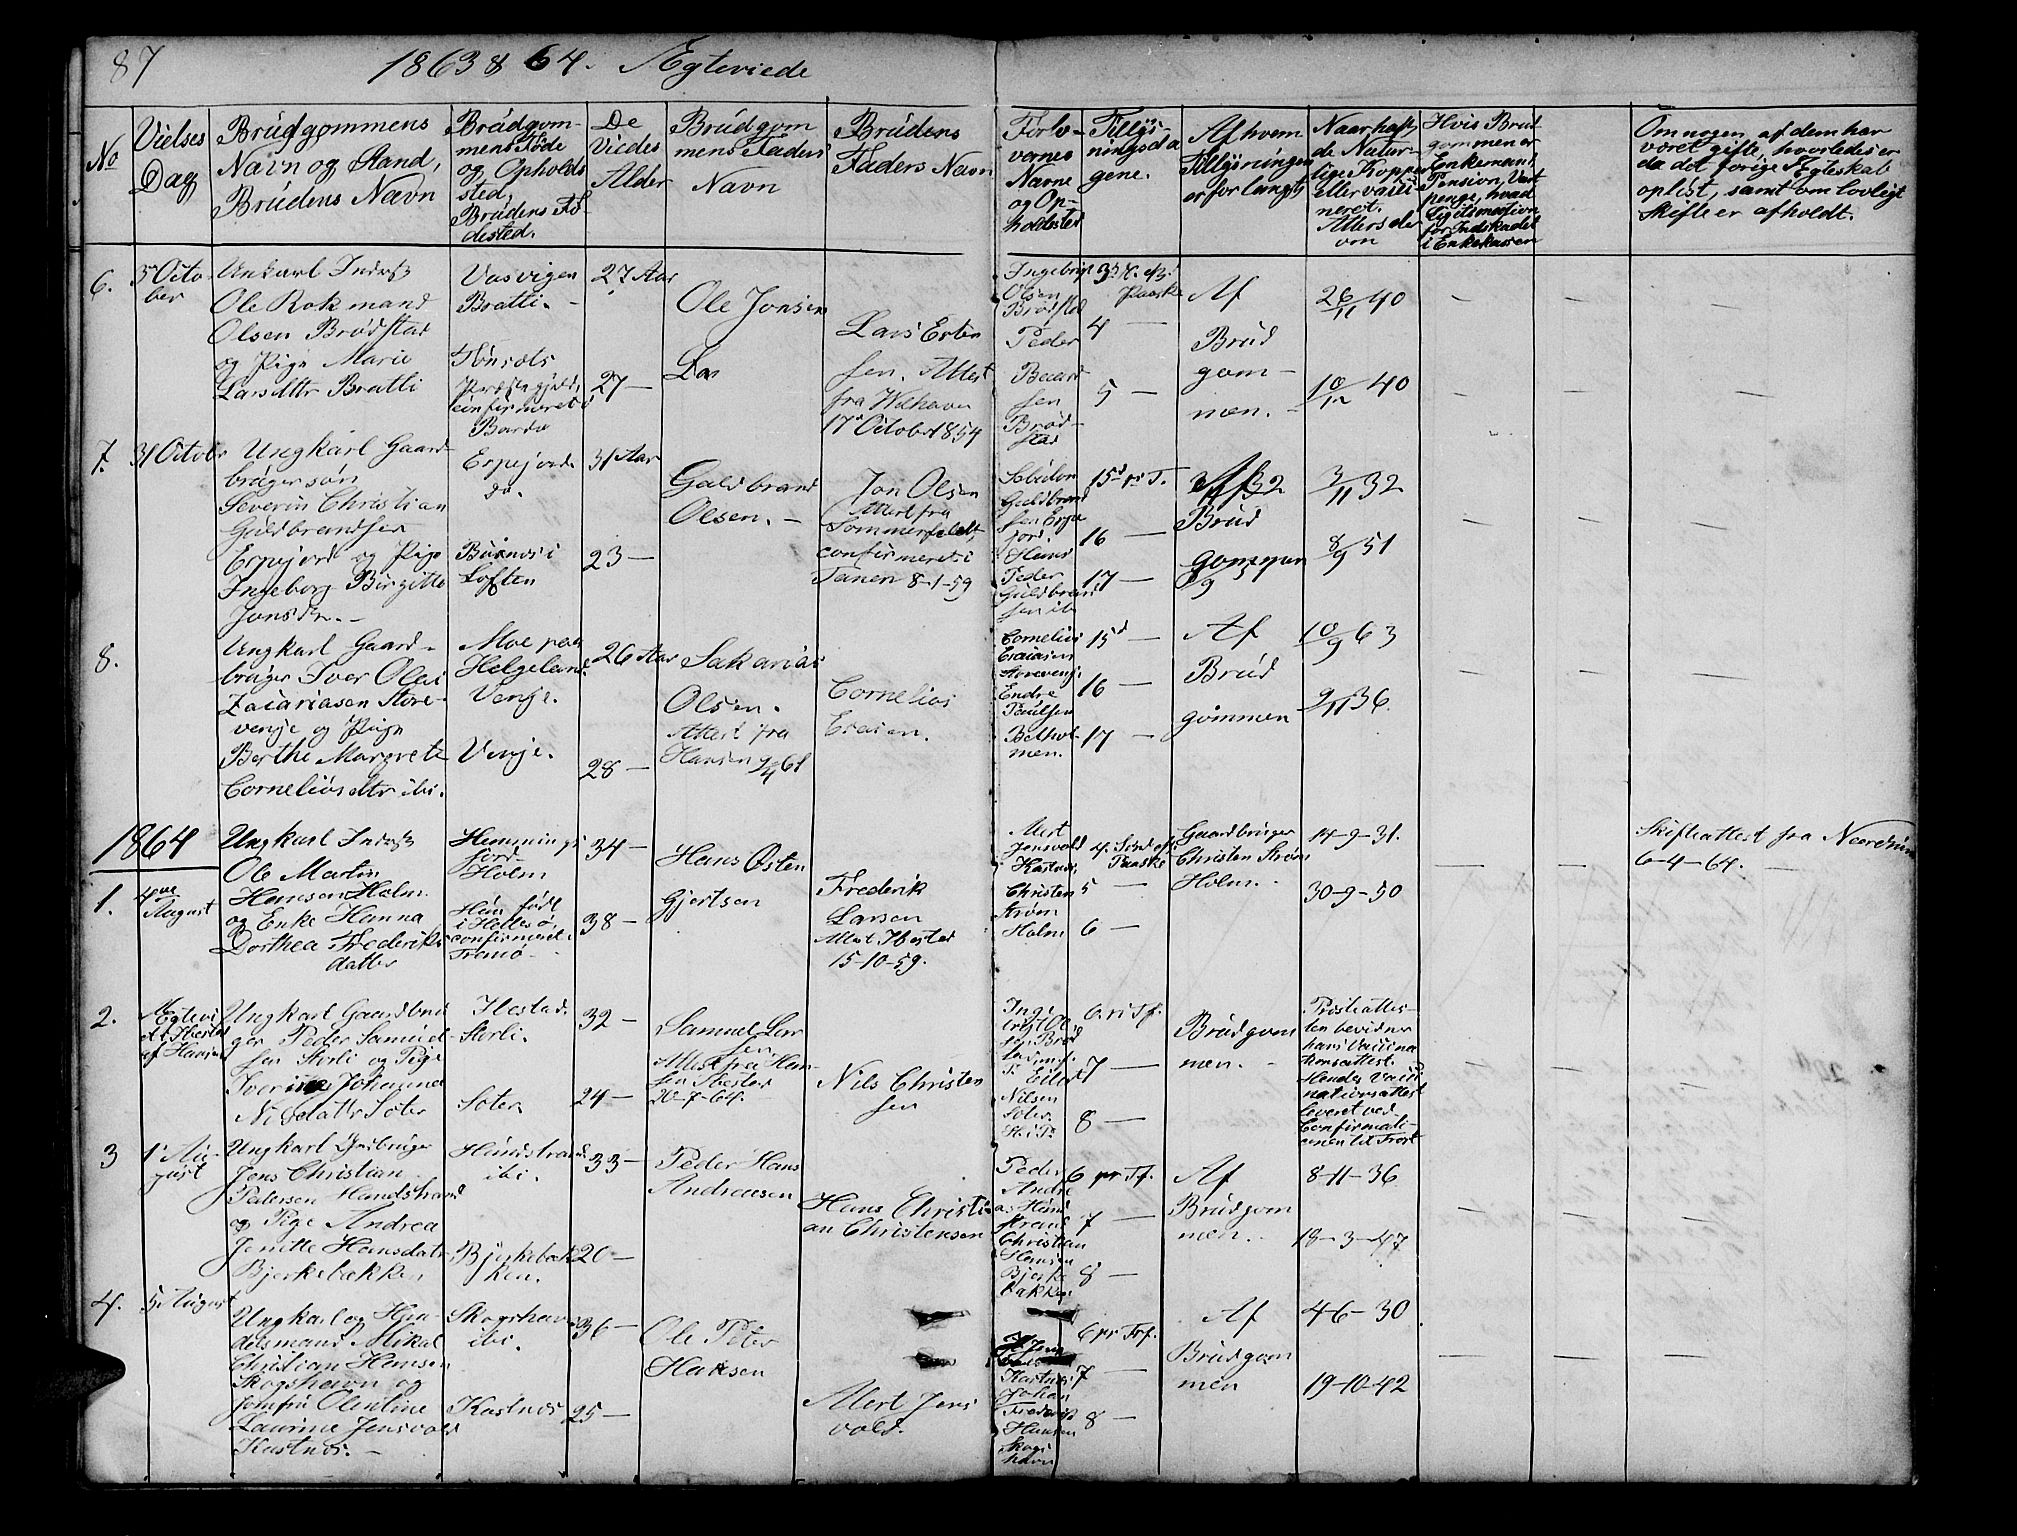 87
1863 & 64. Ægteviede
No
Vielses
Dag
Brudgommens
Navn og Stand,
Brudens Navn
Brudgom-
mens Føde
og Opholds
sted,
Brudens Fø-
dested.
De
Viedes
Alder
Brudgom
mens Faders
Navn
Brudens
Faders Navn
Forlo-
vernes
Navne
og Op-
holdssted
Tillys-
ningsda
gene.
Af hvem
Tillysningen
er forlangt
Naar hafft
de Natur-
lige Kopper
eller vacci
neret.
Attersder
om
Hvis Brud-
gommen er
Enkemand,
Pension, Vart
penge, hvad
Legitimation
for Indskudet
i Enkekassen
Om nogen af dem har
været gifte, hvorledes er
da det forige Ægteskab
opløst, samt om lovligt
Skifte er afholdt.
6.
3 Octo
ber
Unkarl Inders
Ole Rokmand
Olsen Brødstad
og Pige Marie
Larsdtr Bratli
Vasvigen
Bratli. -
Tønsæts
Præstegjeld,
confirmeret i
Bardo
27 Aar
27 -
Ole Jonsen
Las
Lars Esten
sen. Attest
fra
17 October 1854
Ingebrigt
Olsen
Brødsted
Peder
sen
Brød-
stad
3 S. e. P.
Paaske
4 -
5 -
Af
Brud
gom-
men. -
26/11 40
10/12 40
7.
31 Octobr
Ungkarl Gaard-
brugersøn
Severin Christian
Guldbrandsen
Erpejord og Pige
Ingeborg Birgitte
Jonsdr. -
Erpejord
do.
Buxnes i
Loften
31 Aar
23 -
Guldbrand
Olsen. -
Jon Olsen
Attest fra
Sommerfeldt,
confirmeret i
Tanen 8-1-59
Guldbrand
sen Erpe
jord.
Hans
Peder
Guldbrand
sen ib
15d pr T.
16 -
17 -
Brud
gommen
3/11 32
8/9 51
8.
Ungkarl Gaard-
bruger Iver Olai
Zacariasen Store-
venje og Pige
Berthe Margrete
Cornelius dtr ibi.
Moe paa
Helgeland.
Venje.
Venje.
26 Aar
28 -
Sakarias
Olsen.
Attest fra
Hansen 9/4 61
Cornelius
Esaisen.
Cornelius
Esaiasen
Storevenje.
Endre
Paulsen
Bethol-
men.
15d -
16 -
17 -
Af
Brud
gommen
10/9 63
9/11 36.
1864
1.
4de
August
Ungkarl Inders
Ole Martin
Hansen Holm
og Enke Hanna
Dorthea Frederiks
datter
Hemmings
jord
Holm
Hun født
i Hellesø,
confirmeret i
Tromsø -
34 -
38 -
Hans Østen
Gjertsen
Frederik
Larsen
Attest Ibestad
15-10-59.
Mert
Jensvold
Kastnes,
Christen
Strøm
Holm
4. Sønd. ef.
Paaske
5 -
6 -
Gaardbruger
Christen Strøm
Holm. -
14-9-31.
30-9-50
Skifteattest fra
6-4-64.
2.
Ægtevi
et i Ibestad
af Hansen
Ungkarl Gaardbru
ger Peder Samuel
sen Storli og Pige
Iverine Johanna
Nilsdattr Soter
Ilestad.
Storli.
Soter.
32 -
24 -
Samuel Lar
sen
Attest fra Han-
sen Ibestad
30-7-64.
Nils Christen
sen
Inge
brigt Ol.
sen Brød
stad
Eilert
Nilsen
Soter.
6. ri Tf.
7 -
8 -
Brudgom
men. -
Prosteattes-
ten bevidner
hans Vaccina
tionsattest.
Hendes Vacci
nationsattest
leveret ved
Confirmati-
onen til Prost
3
1 Au-
gust
Ungkarl Gaardbruger
Jens Christian
Pedersen Haudstrand
og Pige Andrea
Jenitte Hansdatr
Bjerkebækken
Haudstrand
ibi.
Bjerkebæk
ken.
33 -
20 -
Peder Hans
Andreasen
Hans Christi
an Christensen
Peder
Andre
as Haud
strand
Christian
Hansen
Bjerke
bækken
6 pr Tf.
7 -
8 -
Af
Brudgom
men. -
8-11-36
18-3-47
4.
5 August
Ungkarl og Han-
delsmand Mikal
Christian Hansen
Skogshavn og
Jomfru Olentine
Laurine Jensvold
Kastnes. -
Skogshavn
ibi.
Kastnes
36 -
25 -
Ole Peter
Hansen
Mert Jens
vold.
Kastnes
Johan
Frederik
Hansen
Skogs
havn
6 pr Trf.
7 -
8 -
Af
Brudgom
men
4-6-30
19-10-42